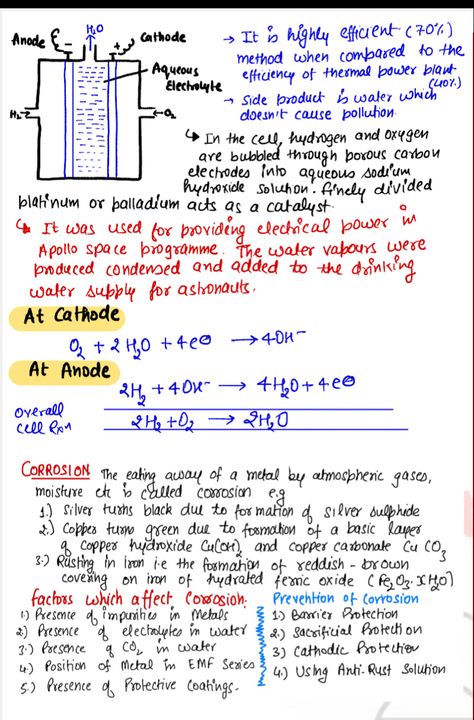 H₂O
Anode
Cathode
Aqueous
Electrolyte
H₂
O₂
→ It is highly efficient (70%)
method when compared to the
efficiency of thermal power plant
(40%)
→ Side product is water which
doesn't cause pollution.
↳ In the cell, hydrogen and oxygen
are bubbled through porous carbon
electrodes into aqueous sodium
hydroxide solution. Finely divided
platinum or palladium acts as a catalyst.
↳ It was used for providing electrical power in
Apollo space programme. The water vapours were
produced condensed and added to the drinking
water supply for astronauts.
At Cathode
O₂ + 2H₂O + 4e⊖ → 4OH⁻
At Anode
2H₂ + 4OH⁻ → 4H₂O + 4e⊖
overall
cell Rxn
2H₂ + O₂ → 2H₂O
CORROSION The eating away of a metal by atmospheric gases,
moisture etc is called corrosion e.g
1.) Silver turns black due to formation of silver sulphide
2.) Copper turns green due to formation of a basic layer
of copper hydroxide Cu(OH)₂ and copper carbonate CuCO₃
3.) Rusting in iron i.e the formation of reddish-brown
covering on iron of hydrated ferric oxide (Fe₂O₃.xH₂O)
Factors which affect Corrosion.
1.) Presence of impurities in Metals
2) Presence of electrolytes in water
3.) Presence of CO₂ in water
4.) Position of Metal in EMF Series
5.) Presence of Protective Coatings.
Prevention of Corrosion
1.) Barrier Protection
2.) Sacrificial Protection
3) Cathodic Protection
4.) Using Anti-Rust Solution